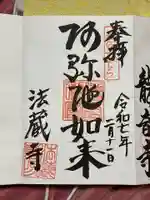 奉拝
令和七年
二月十一日
阿弥陀如来
法蔵寺